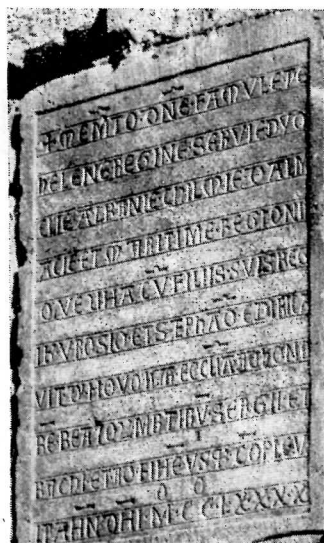 + MEMTO · DNE · FAMVLE
HELENE REGINE · SERVIE · DYO
CLIE ALBANIE CHILMIE · DALM
ACIE ET MARITIME · REGIONI
QVE VNA CV FILIIS · SVIS REG
IB VROSIO ET STEPHAO · EDIFICA
VIT D NOVO ECCLIAM AD HONO
RE BEATOR MRTIRV SERGII ET
BACHI ET AD FINE VSQ COPLEV
IT AN DNI · M · C C · L X X X X